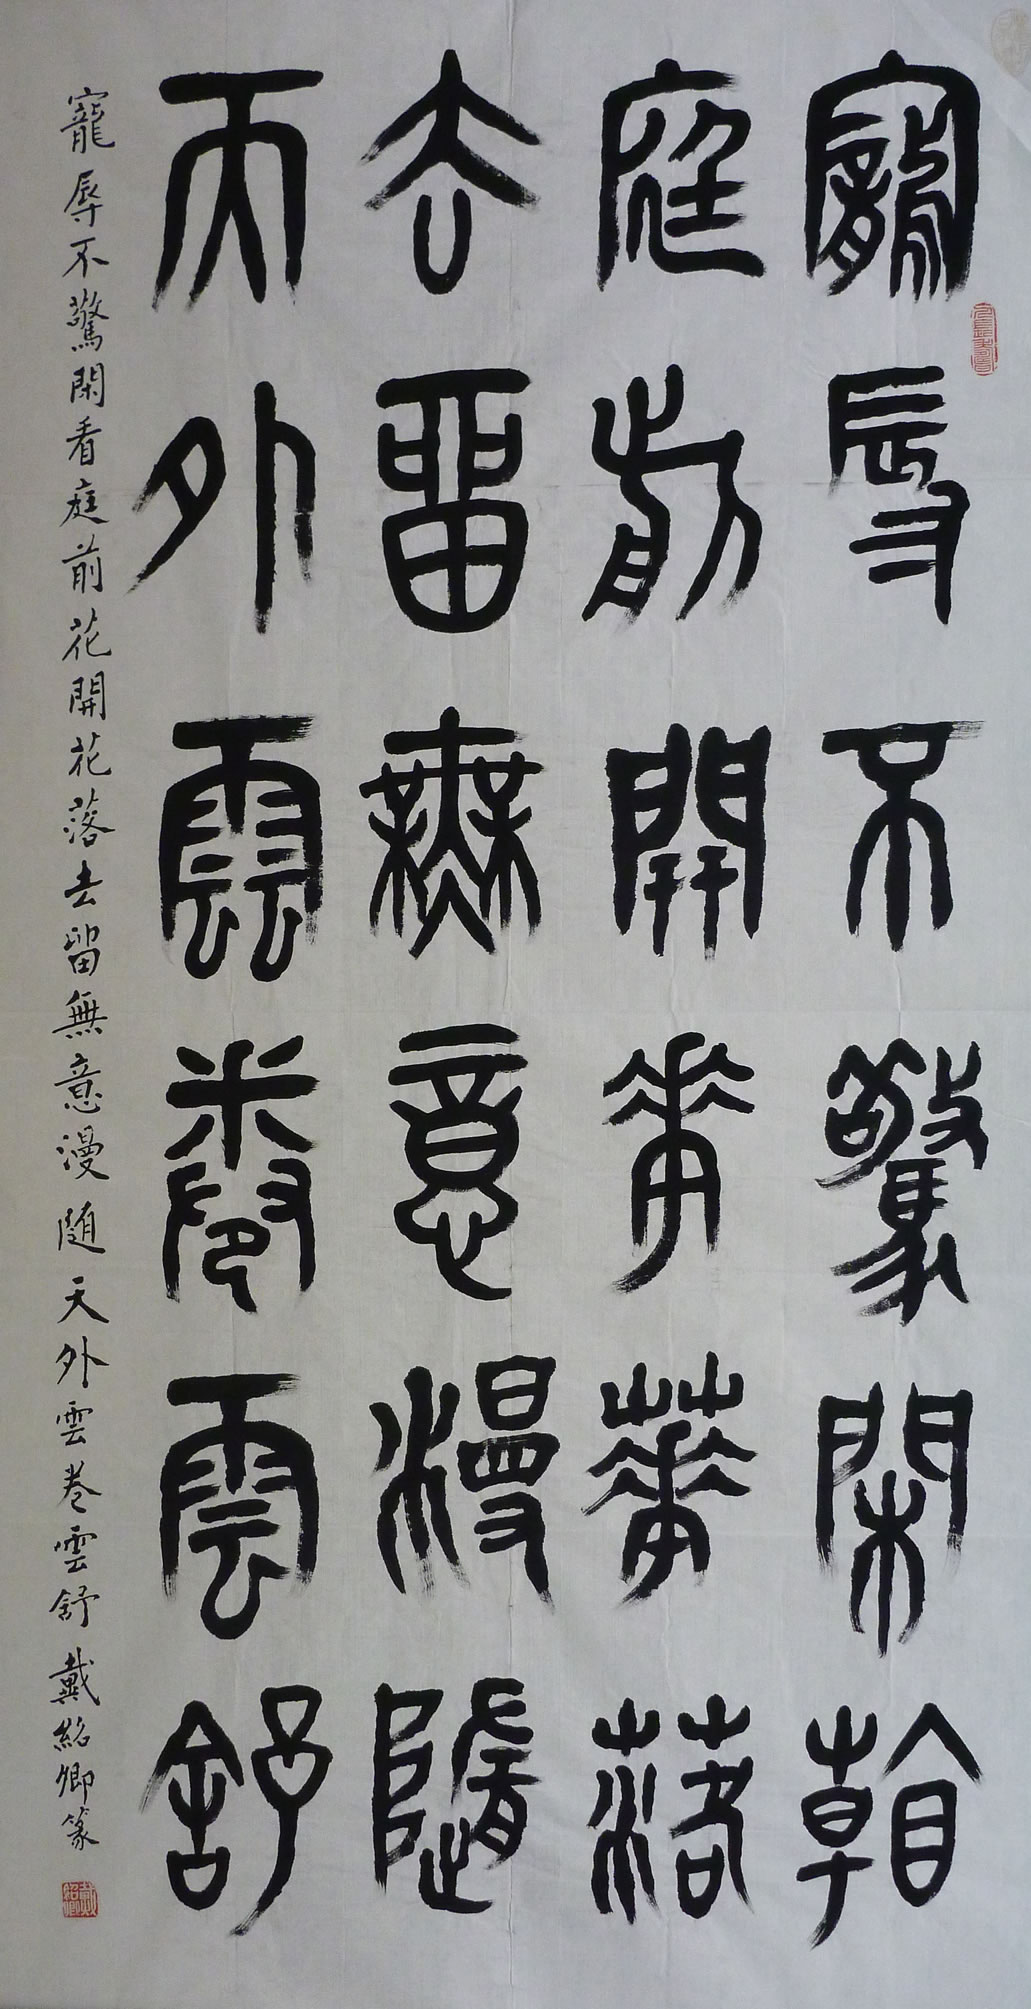 寵辱不驚閑看
庭前開花花落
去留無意漫隨
天外雲卷雲舒
寵辱不驚閑看庭前花開花落去留無意漫随天外雲卷雲舒 戴紹卿篆